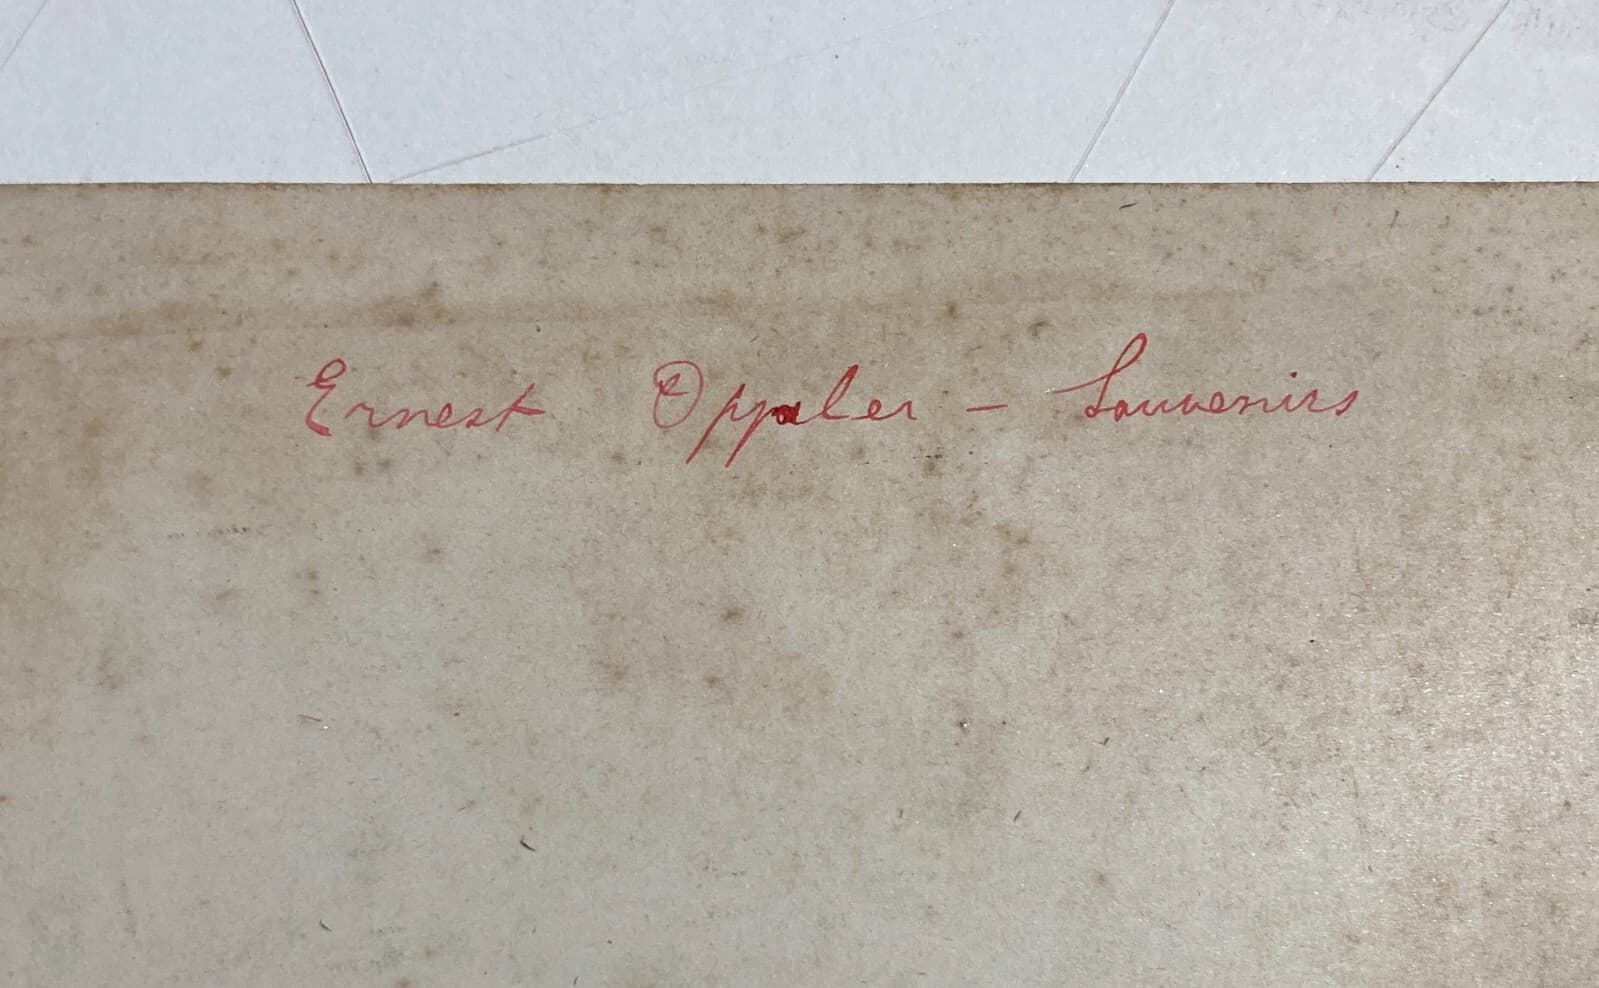 Ernest Oppler - Souvenirs